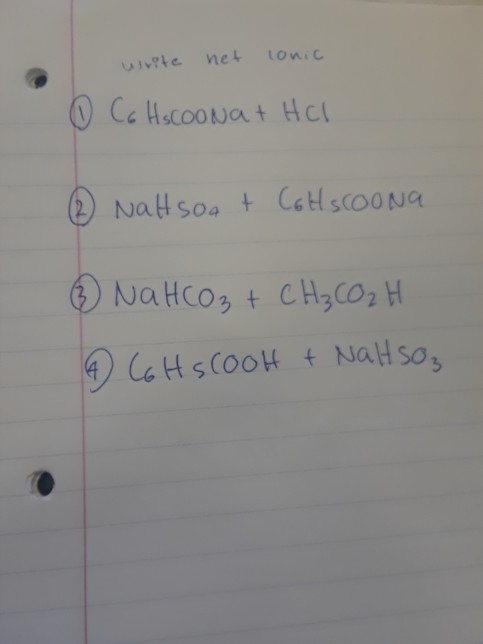 write net ionic
① C6H5COONa + HCl
② NaHSO4 + C6H5COONa
③ NaHCO3 + CH3CO2H
④ C6H5COOH + NaHSO3